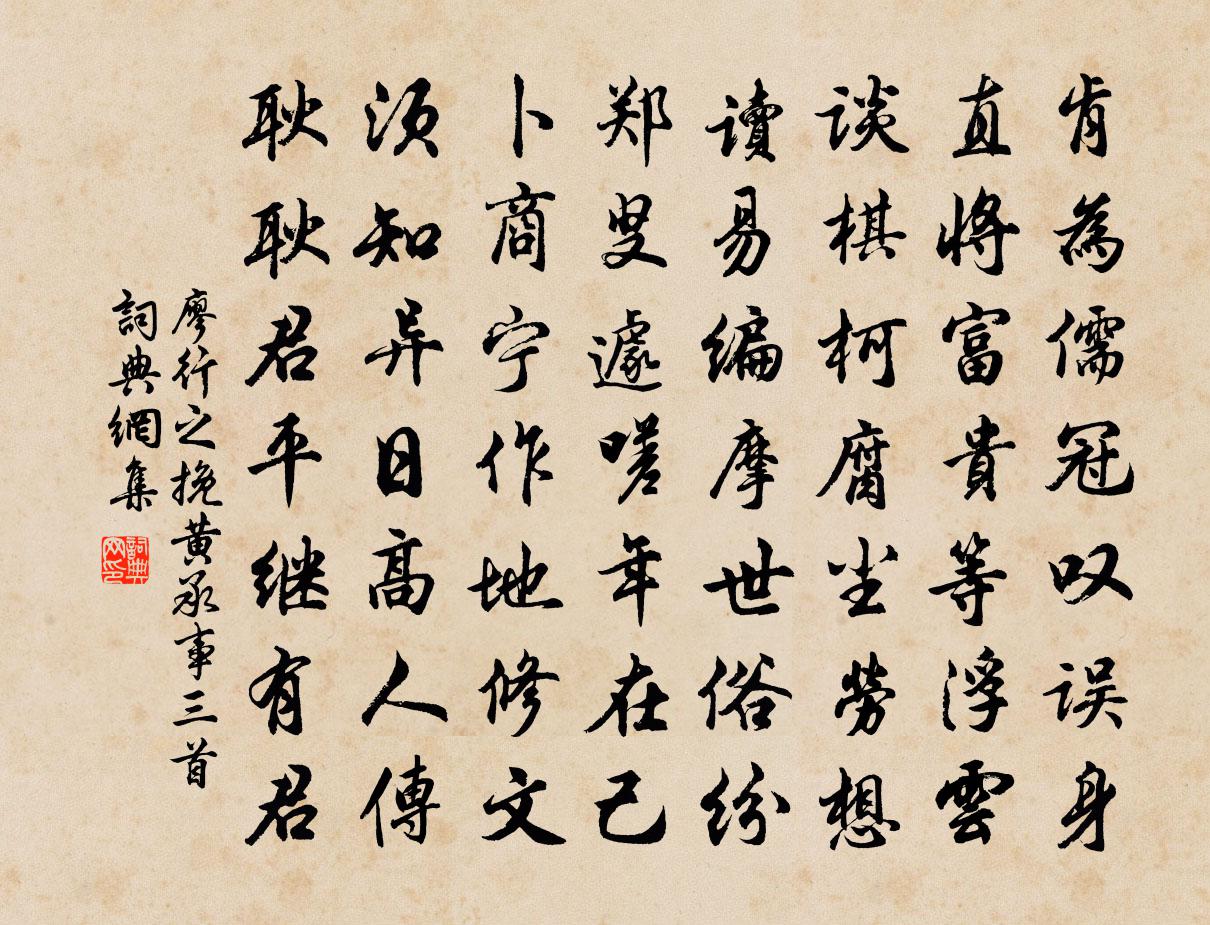 肯為儒冠叹误身
直将富貴等浮雲
谈棋柯腐坐劳想
读易编摩世俗纷
郑叟遽嗟年在己
卜商宁作地修文
须知异日高人傳
耿耿君平继有君
廖行之挽黄承事三首
詞典網集
詞典網印